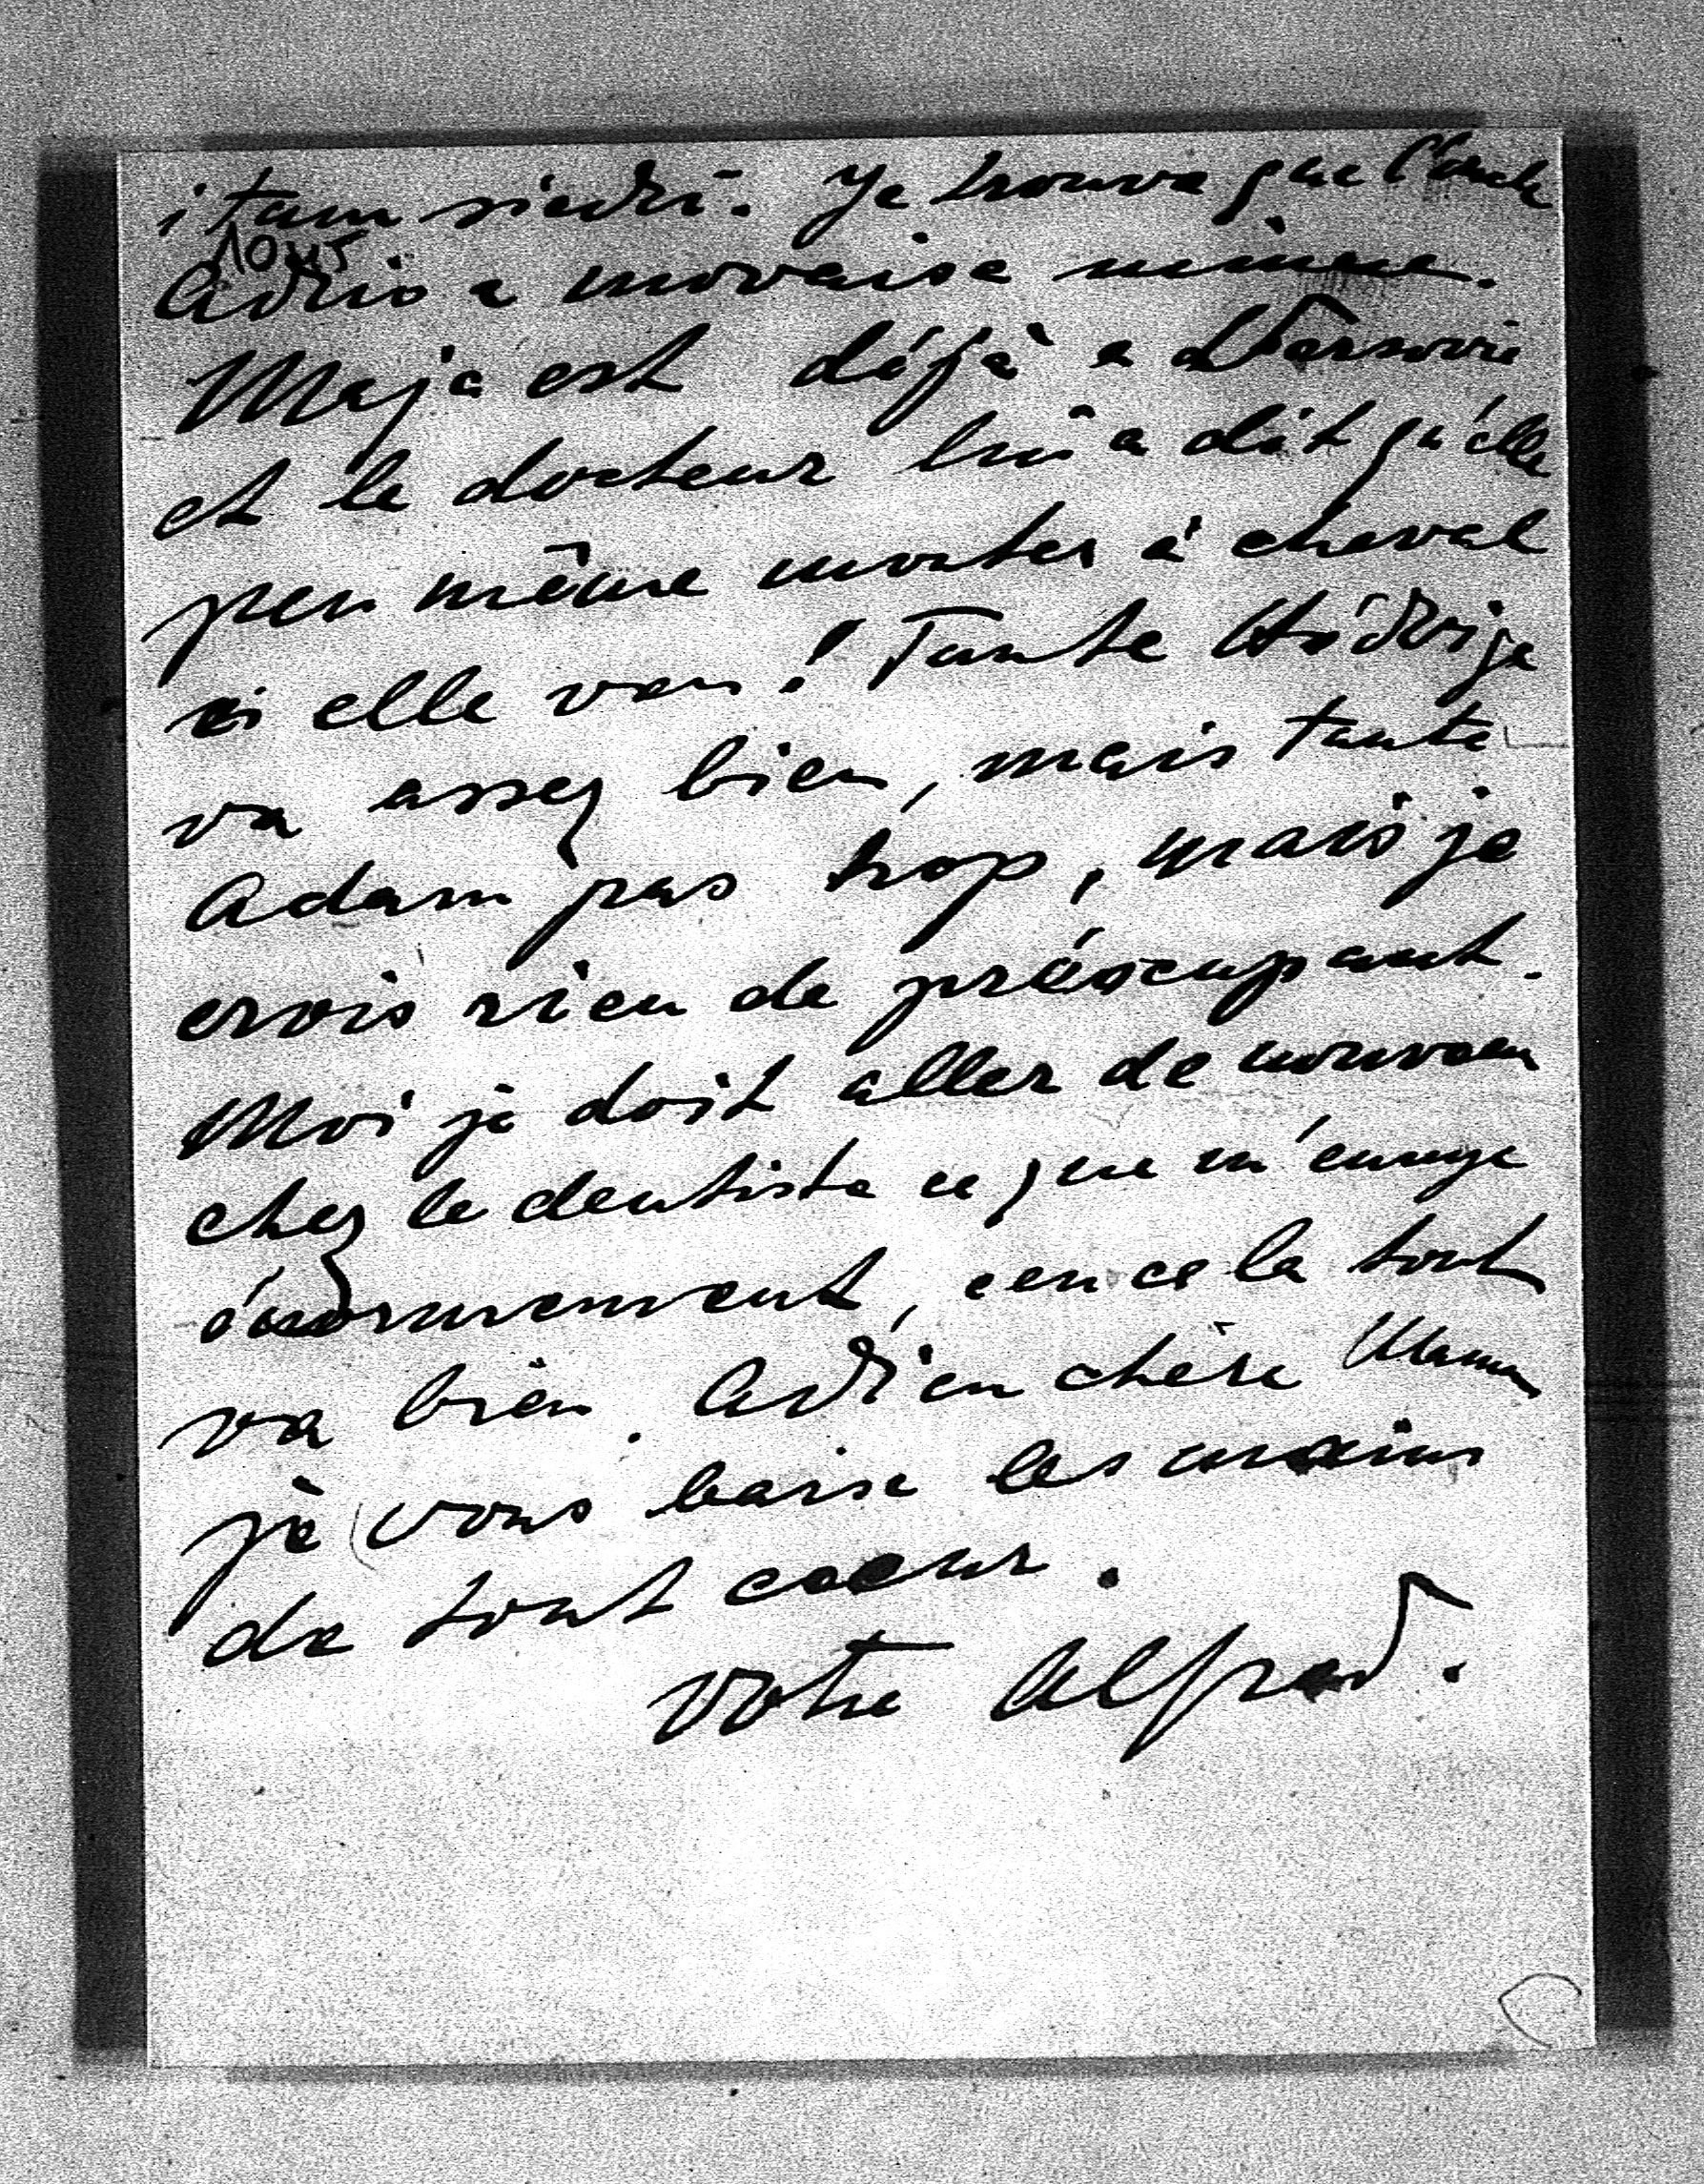 i tam siedzi. Je trouve que l'oncle
1045
Adzio a movaise minne.
Maja est déjà a Varsovie
et le docteur lui a dit qu'elle
peu même monter à cheval
si elle veu! Tante Hédvige
va assez bien, mais tante
Adam pas trop, mais je
crois rien de préocupant.
Moi je doit aller de nouveau
chez le dentiste ce que m'ennuye
énormement, cence la tout
va bien. Adieu chère Maman
je vous baise les mains
de tout coeur.
Votre Alfred.